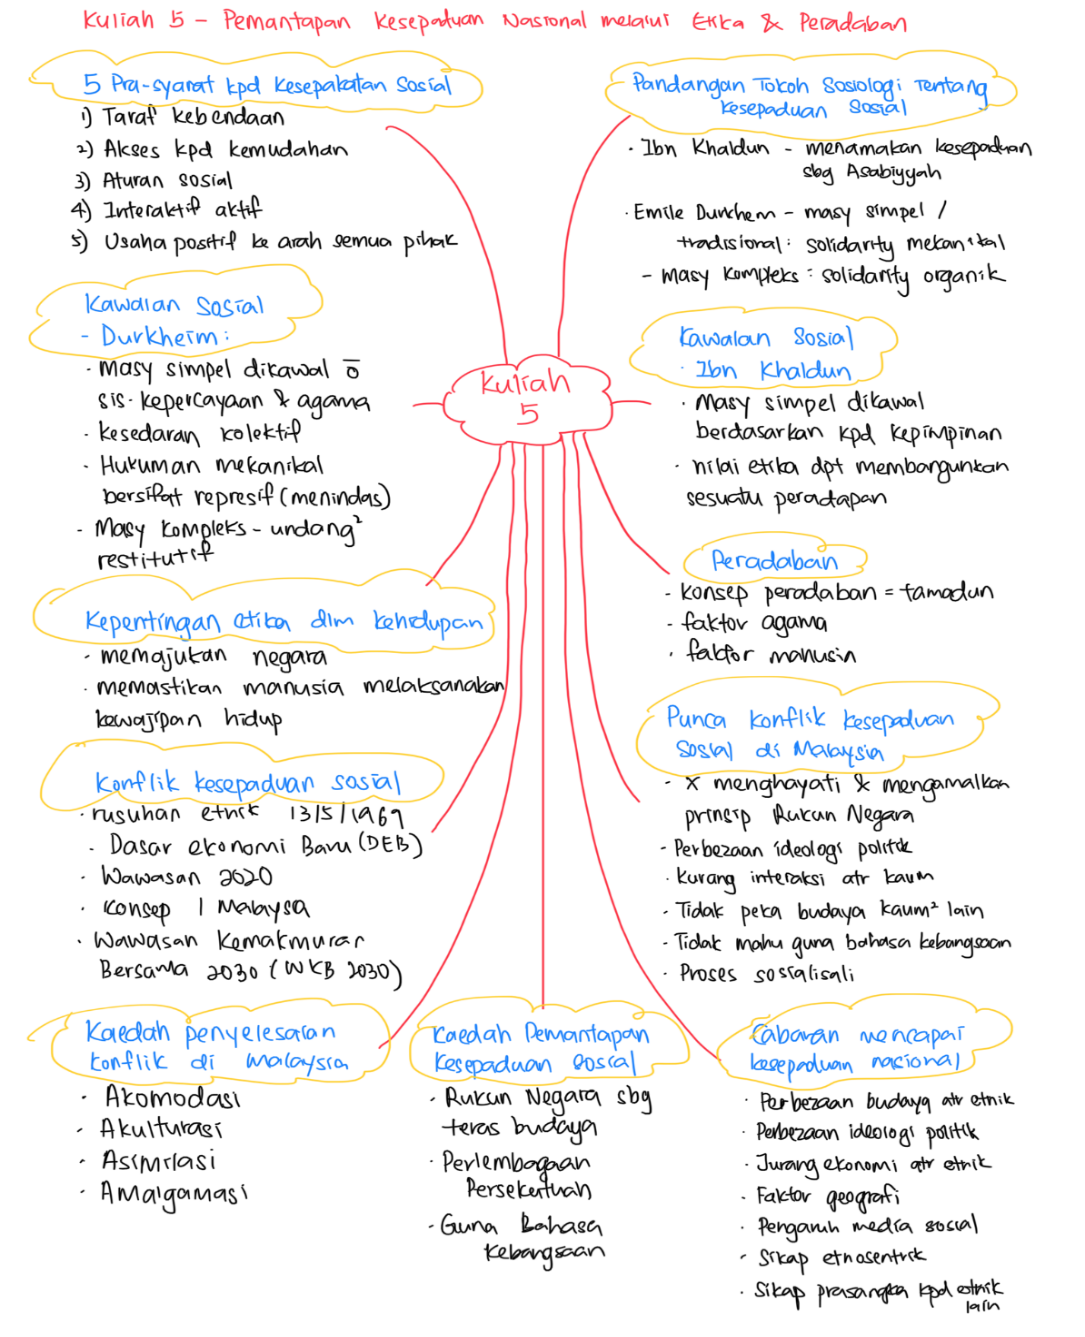 Kuliah 5 - Pemantapan Kesepaduan Nasional melalui Etika & Peradaban
5 Pra-syarat kpd Kesepakatan Sosial
1) Taraf kebendaan
2) Akses kpd kemudahan
3) Aturan sosial
4) Interaktif aktif
5) Usaha positif ke arah semua pihak
Kawalan Sosial
- Durkheim:
· Masy simpel dikawal ō
sis. kepercayaan & agama
· kesedaran kolektif
· Hukuman mekanikal
bersifat represif (menindas)
· Masy kompleks - undang²
restitutif
Kepentingan etika dlm kehidupan
· memajukan negara
· memastikan manusia melaksanakan
kewajipan hidup
Konflik kesepaduan sosial
· rusuhan etnik 13/5/1969
· Dasar ekonomi Baru (DEB)
· Wawasan 2020
· Konsep 1 Malaysa
· Wawasan Kemakmuran
Bersama 2030 (WKB 2030)
Kaedah penyelesaian
konflik di Malaysia
· Akomodasi
· Akulturasi
· Asimilasi
· Amalgamasi
Kuliah
5
Kaedah Pemantapan
Kesepaduan sosial
· Rukun Negara sbg
teras budaya
· Perlembagaan
Persekutuan
· Guna Bahasa
Kebangsaan
Pandangan Tokoh Sosiologi Tentang
Kesepaduan Sosial
· Ibn Khaldun - menamakan kesepaduan
sbg Asabiyyah
· Emile Durkhem - masy simpel /
tradisional: solidarity mekanikal
- masy kompleks: solidarity organik
Kawalan Sosial
· Ibn Khaldun
· Masy simpel dikawal
berdasarkan kpd kepimpinan
· nilai etika dpt membangunkan
sesuatu peradapan
Peradaban
· konsep peradaban = tamadun
· faktor agama
· faktor manusia
Punca konflik kesepaduan
sosial di Malaysia
· x menghayati & mengamalkan
prinsip Rukun Negara
· Perbezaan ideologi politik
· kurang interaksi atr kaum
· Tidak peka budaya kaum² lain
· Tidak mahu guna bahasa kebangsaan
· Proses sosialisali
Cabaran mencapai
kesepaduan nacional
· Perbezaan budaya atr etnik
· Perbezaan ideologi politik
· Jurang ekonomi atr etnik
· Faktor geografi
· Pengaruh media sosial
· Sikap etnosentrik
· Sikap prasangka kpd etnik
lain